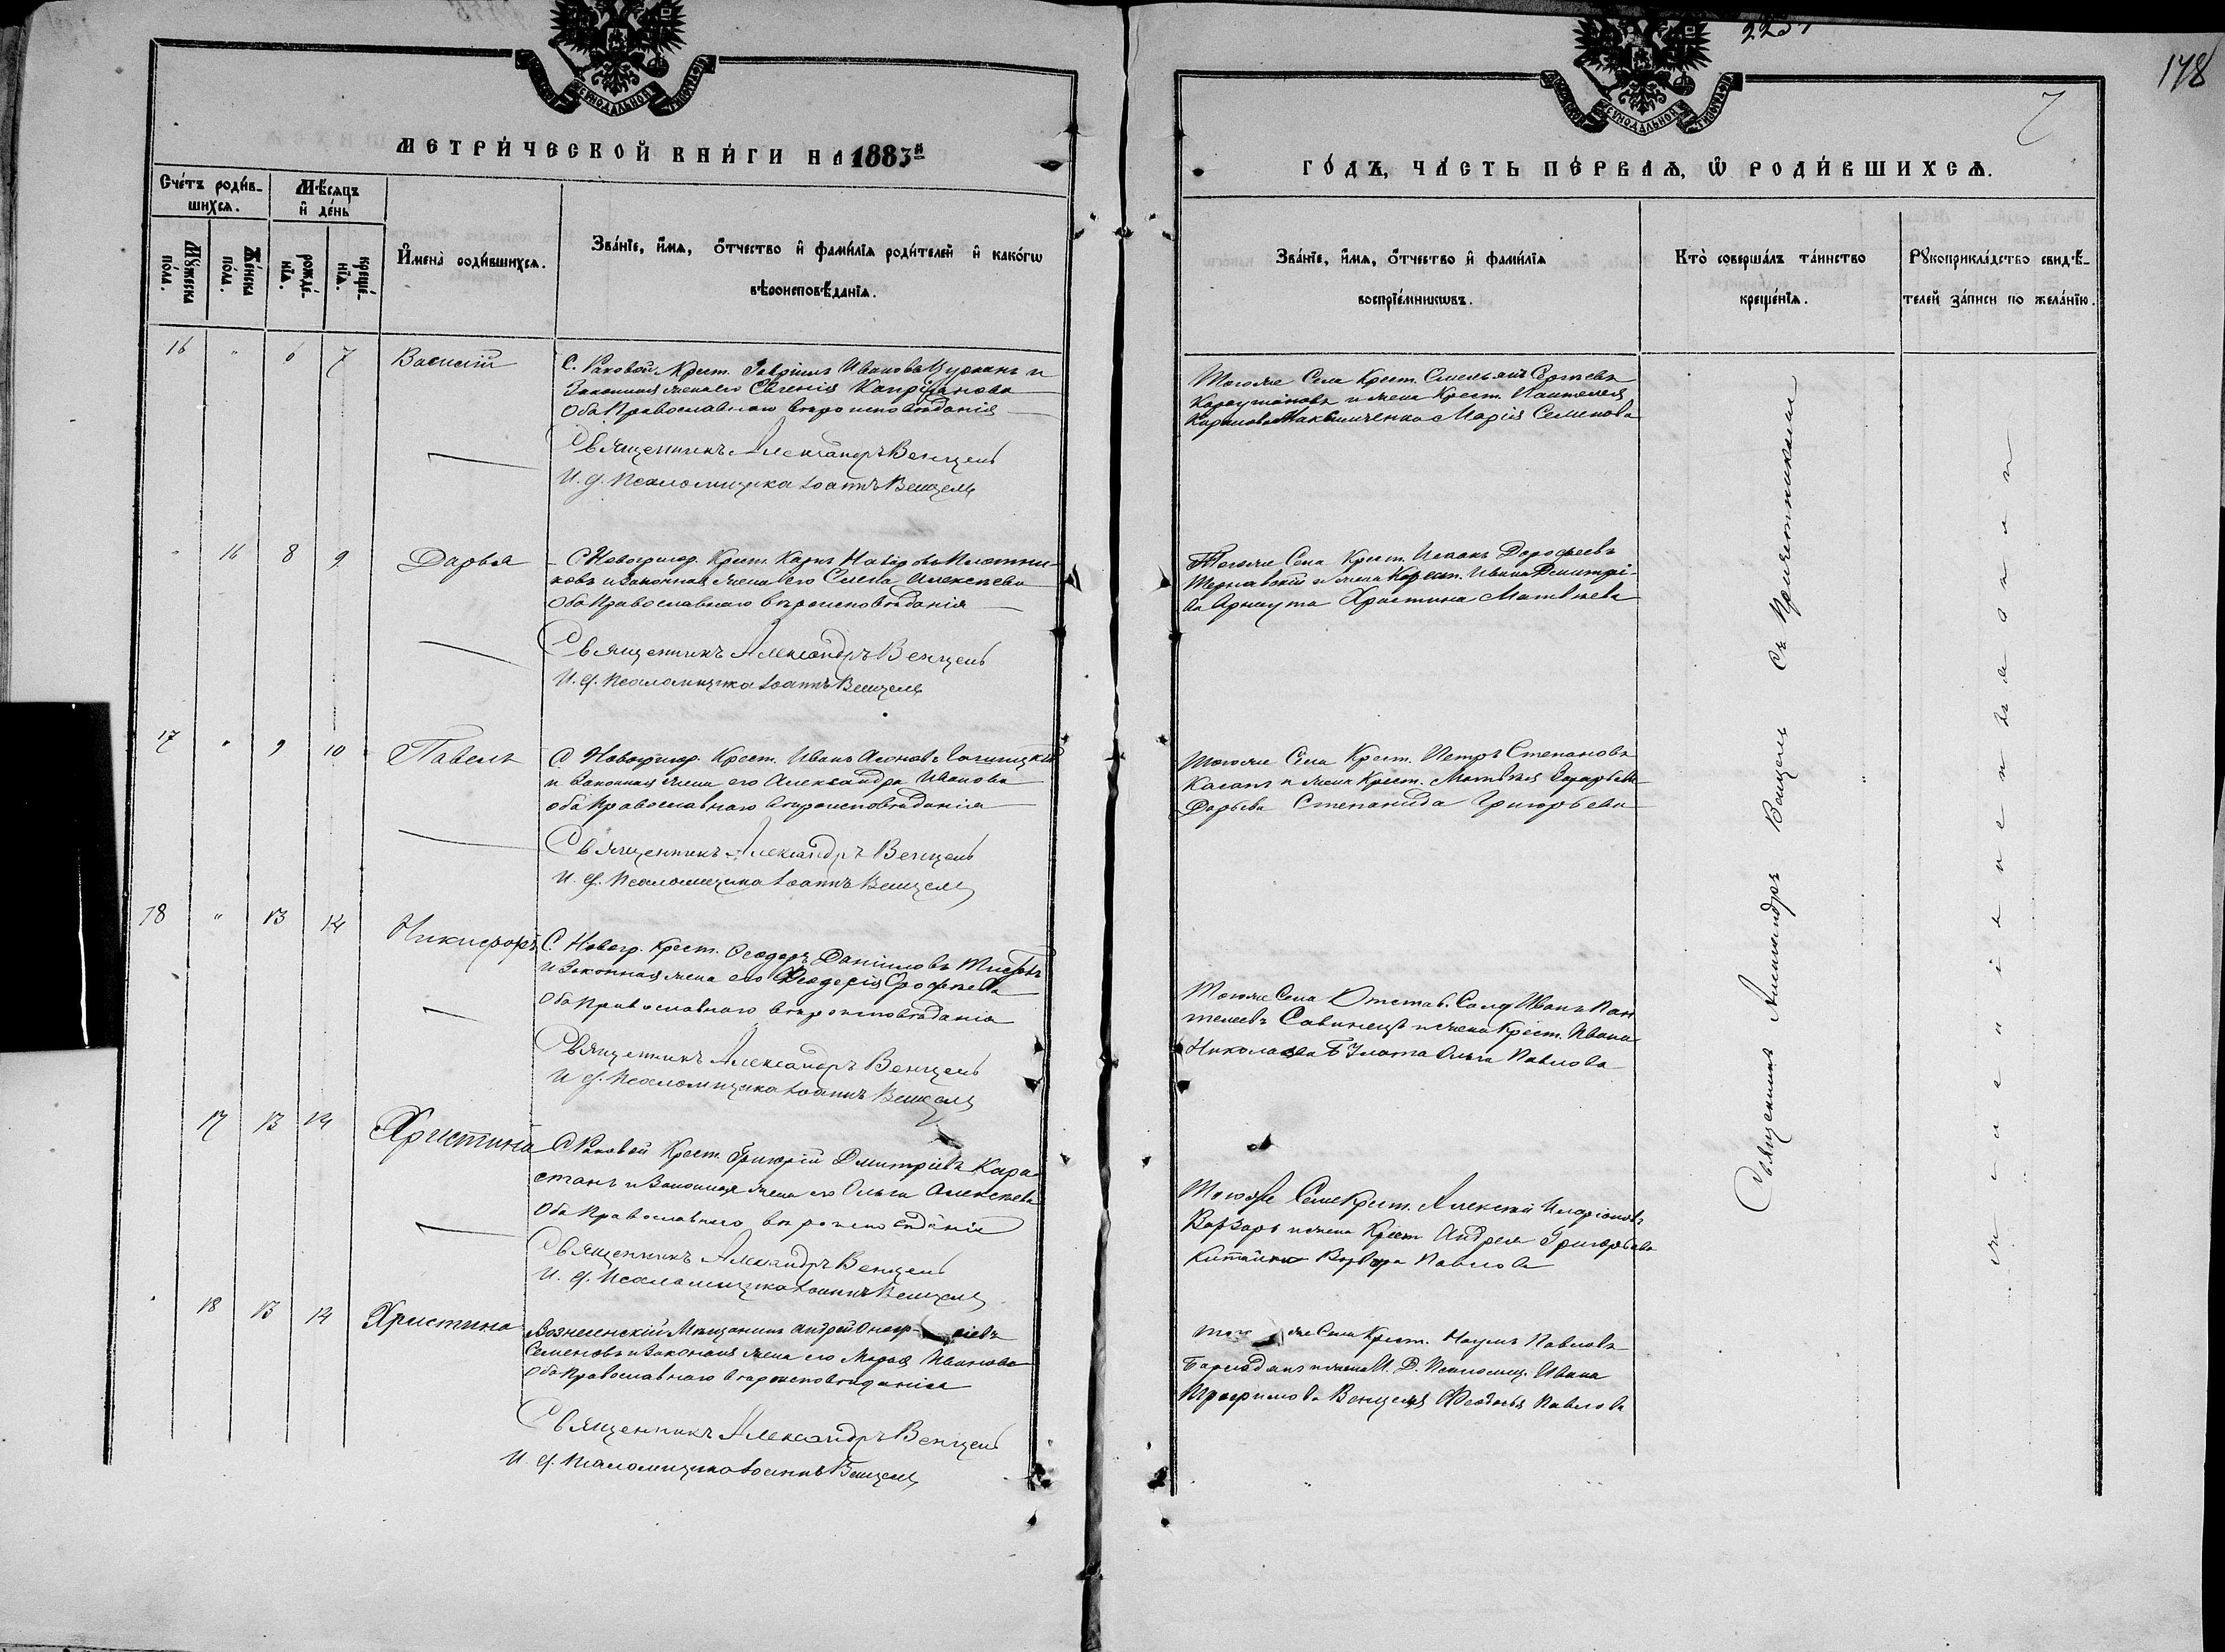 2237
178
7
СѴНОДАЛЬНОЙ ТИПОГРАФІИ
СѴНОДАЛЬНОЙ ТИПОГРАФІИ
МЕТРИ́ЧЕСКОЙ КНИ́ГИ НА 1883й
ГО́ДЪ, ЧА́СТЬ ПЕ́РВАѦ, Ѡ РОДИ́ВШИХСѦ.
Сче́тъ роди́в-
шихсѧ.
Мѣ́сѧцъ
и҆ де́нь
Мꙋ́жеска по́ла.
Же́нска по́ла.
рожде́нїѧ.
креще́нїѧ.
И҆мена̀ роди́вшихсѧ.
Зва́нїе, и҆́мѧ, ѻ҆́тчество и҆ фами́лїѧ роди́телей и҆ како́гѡ
вѣроисповѣ́данїѧ.
Зва́нїе, и҆́мѧ, ѻ҆́тчество и҆ фами́лїѧ
воспрїе́мникѡвъ.
Кто̀ соверша́лъ та́инство
креще́нїѧ.
Рꙋкоприкла́дство свидѣ́-
телей за́писи по жела́нїю.
16 " 6 7 Василій
С. Раковой Крест. Гавріилъ Ивановъ Цурканъ и
Законная жена его Евгенія Капріянова
Оба Православнаго вѣроисповѣданія
Священникъ Александръ Венцель
И. д. Псаломщика Іоаннъ Венцель
Тогоже Села Крест. Емельянъ Сергѣевъ
и жена Крест. Пантелея
Марія Семенова
" 16 8 9 Дарья
С Новогригор. Крест. Карпъ Плотни-
ковъ и Законная жена его Елена Алексѣева
Оба Православнаго вѣроисповѣданія
Священникъ Александръ Венцель
И. д. Псаломщика Іоаннъ Венцель
Тогоже Села Крест. Исаакъ Дорофеевъ
Терновскій и жена Крест. Ивана Димитрі-
ва Арнаута Христина Матвѣева
17 " 9 10 Павелъ
С Новогригор. Крест. Иванъ
и Законная жена его Александра Иванова
оба Православнаго вѣроисповѣданія
Священникъ Александръ Венцель
И. д. Псаломщика Іоаннъ Венцель
Тогоже Села Крест. Петръ Степановъ
Касапъ и жена Крест. Матвѣя
Степанида Григорьева
18 " 13 14 Никифоръ
С. Новогр. Крест. Ѳеодоръ Даніиловъ
и Законная жена его Ѳеодосія Ерофѣева
Оба Православнаго вѣроисповѣданія
Священникъ Александръ Венцель
И. д. Псаломщика Іоаннъ Венцель
Тогоже Села Отстав. Солд Иванъ Пан
телеевъ Савинецъ и жена Крест. Ивана
Николаева Булата Ольга Павлова
17 13 14 Христина
С Раковой Крест. Григорій Дмитріевъ Кара-
станъ и Законная жена его Ольга Алексѣева
Оба Православнаго вѣроисповѣданія
Священникъ Александръ Венцель
И. д. Псаломщика Іоаннъ Венцель
Тогоже Села Крест. Алексѣй Иларіоновъ
Варзаръ и жена Крест Андрея Григорьева
Варвара Павлова
" 18 13 14 Христина
Вознесенскій Мѣщанинъ Андрей
Семеновъ и Законная жена его Марья Иванова
Оба Православнаго вѣроисповѣданія
Священникъ Александръ Венцель
И. д. Псаломщика Іоаннъ Венцель
того же Села Крест. Наумъ Павловъ
и жена И. Д. Псаломщ. Ивана
Трофимова Венцеля Ѳеодосья Павлова
Священникъ Александръ Венцель съ Причетниками